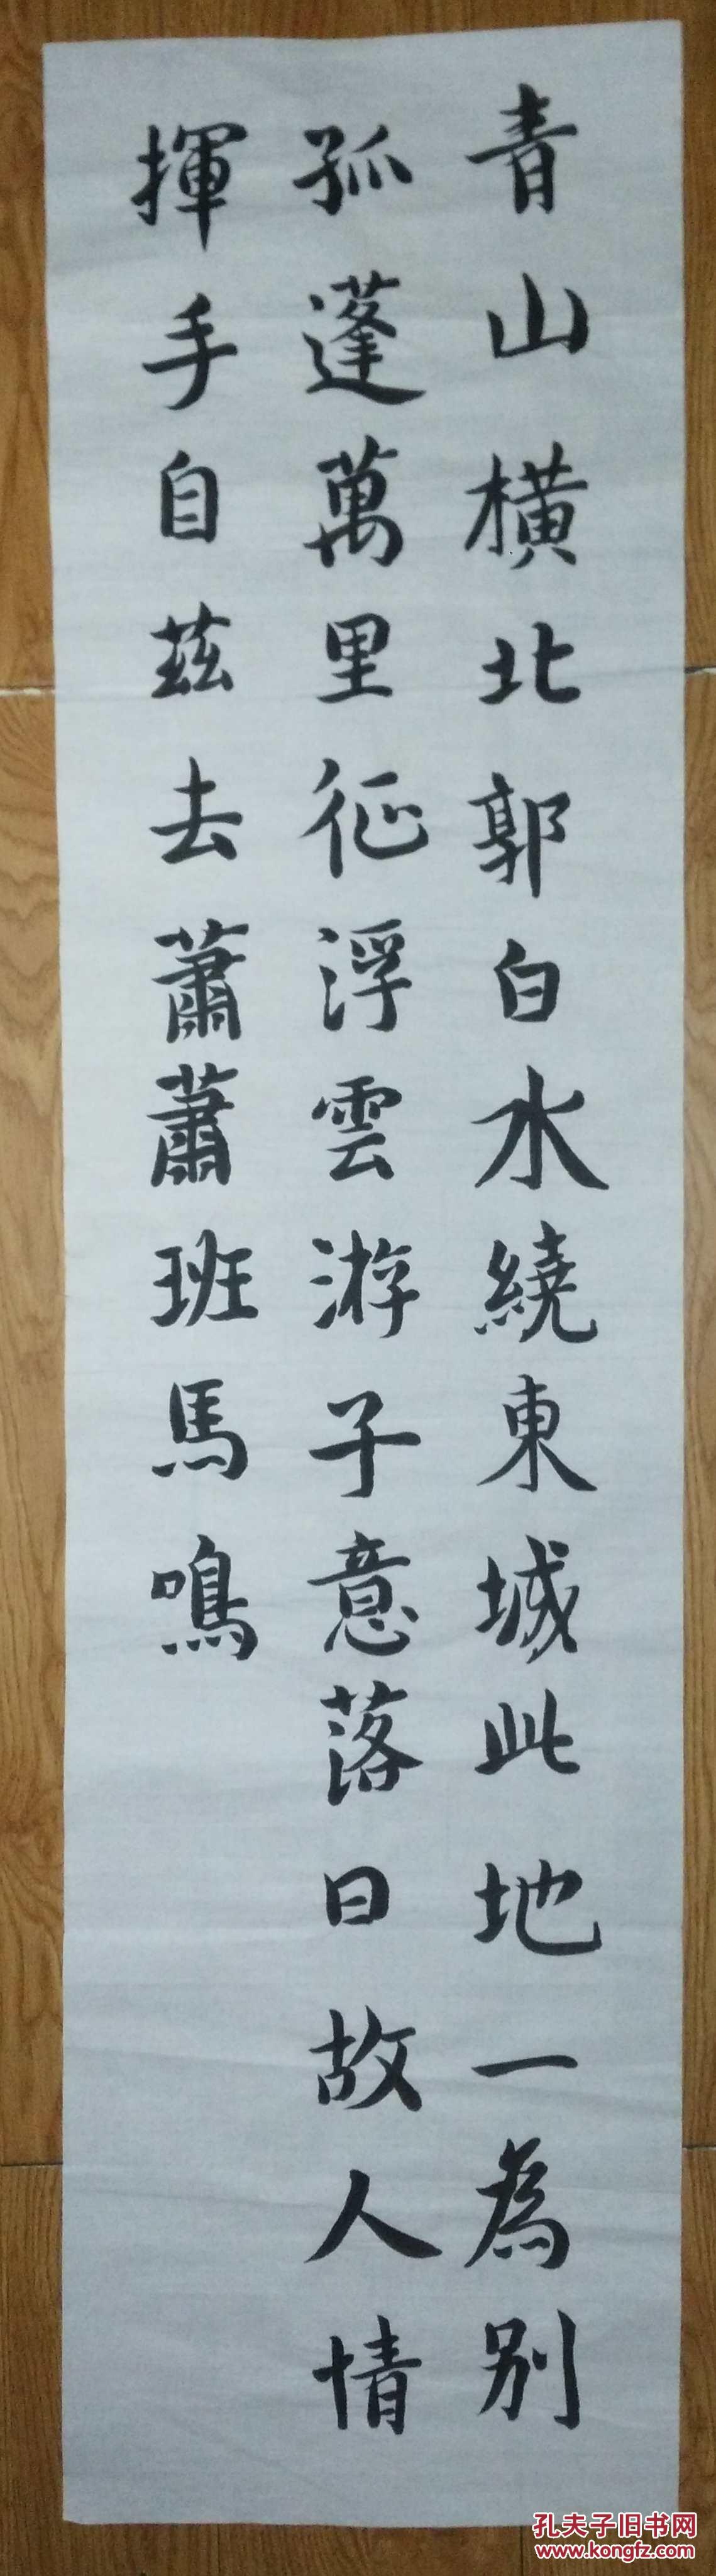 青山橫北郭白水繞東城此地一為别
孤蓬萬里征浮雲游子意落日故人情
揮手自茲去蕭蕭班馬鳴
孔夫子旧书网
www.kongfz.com